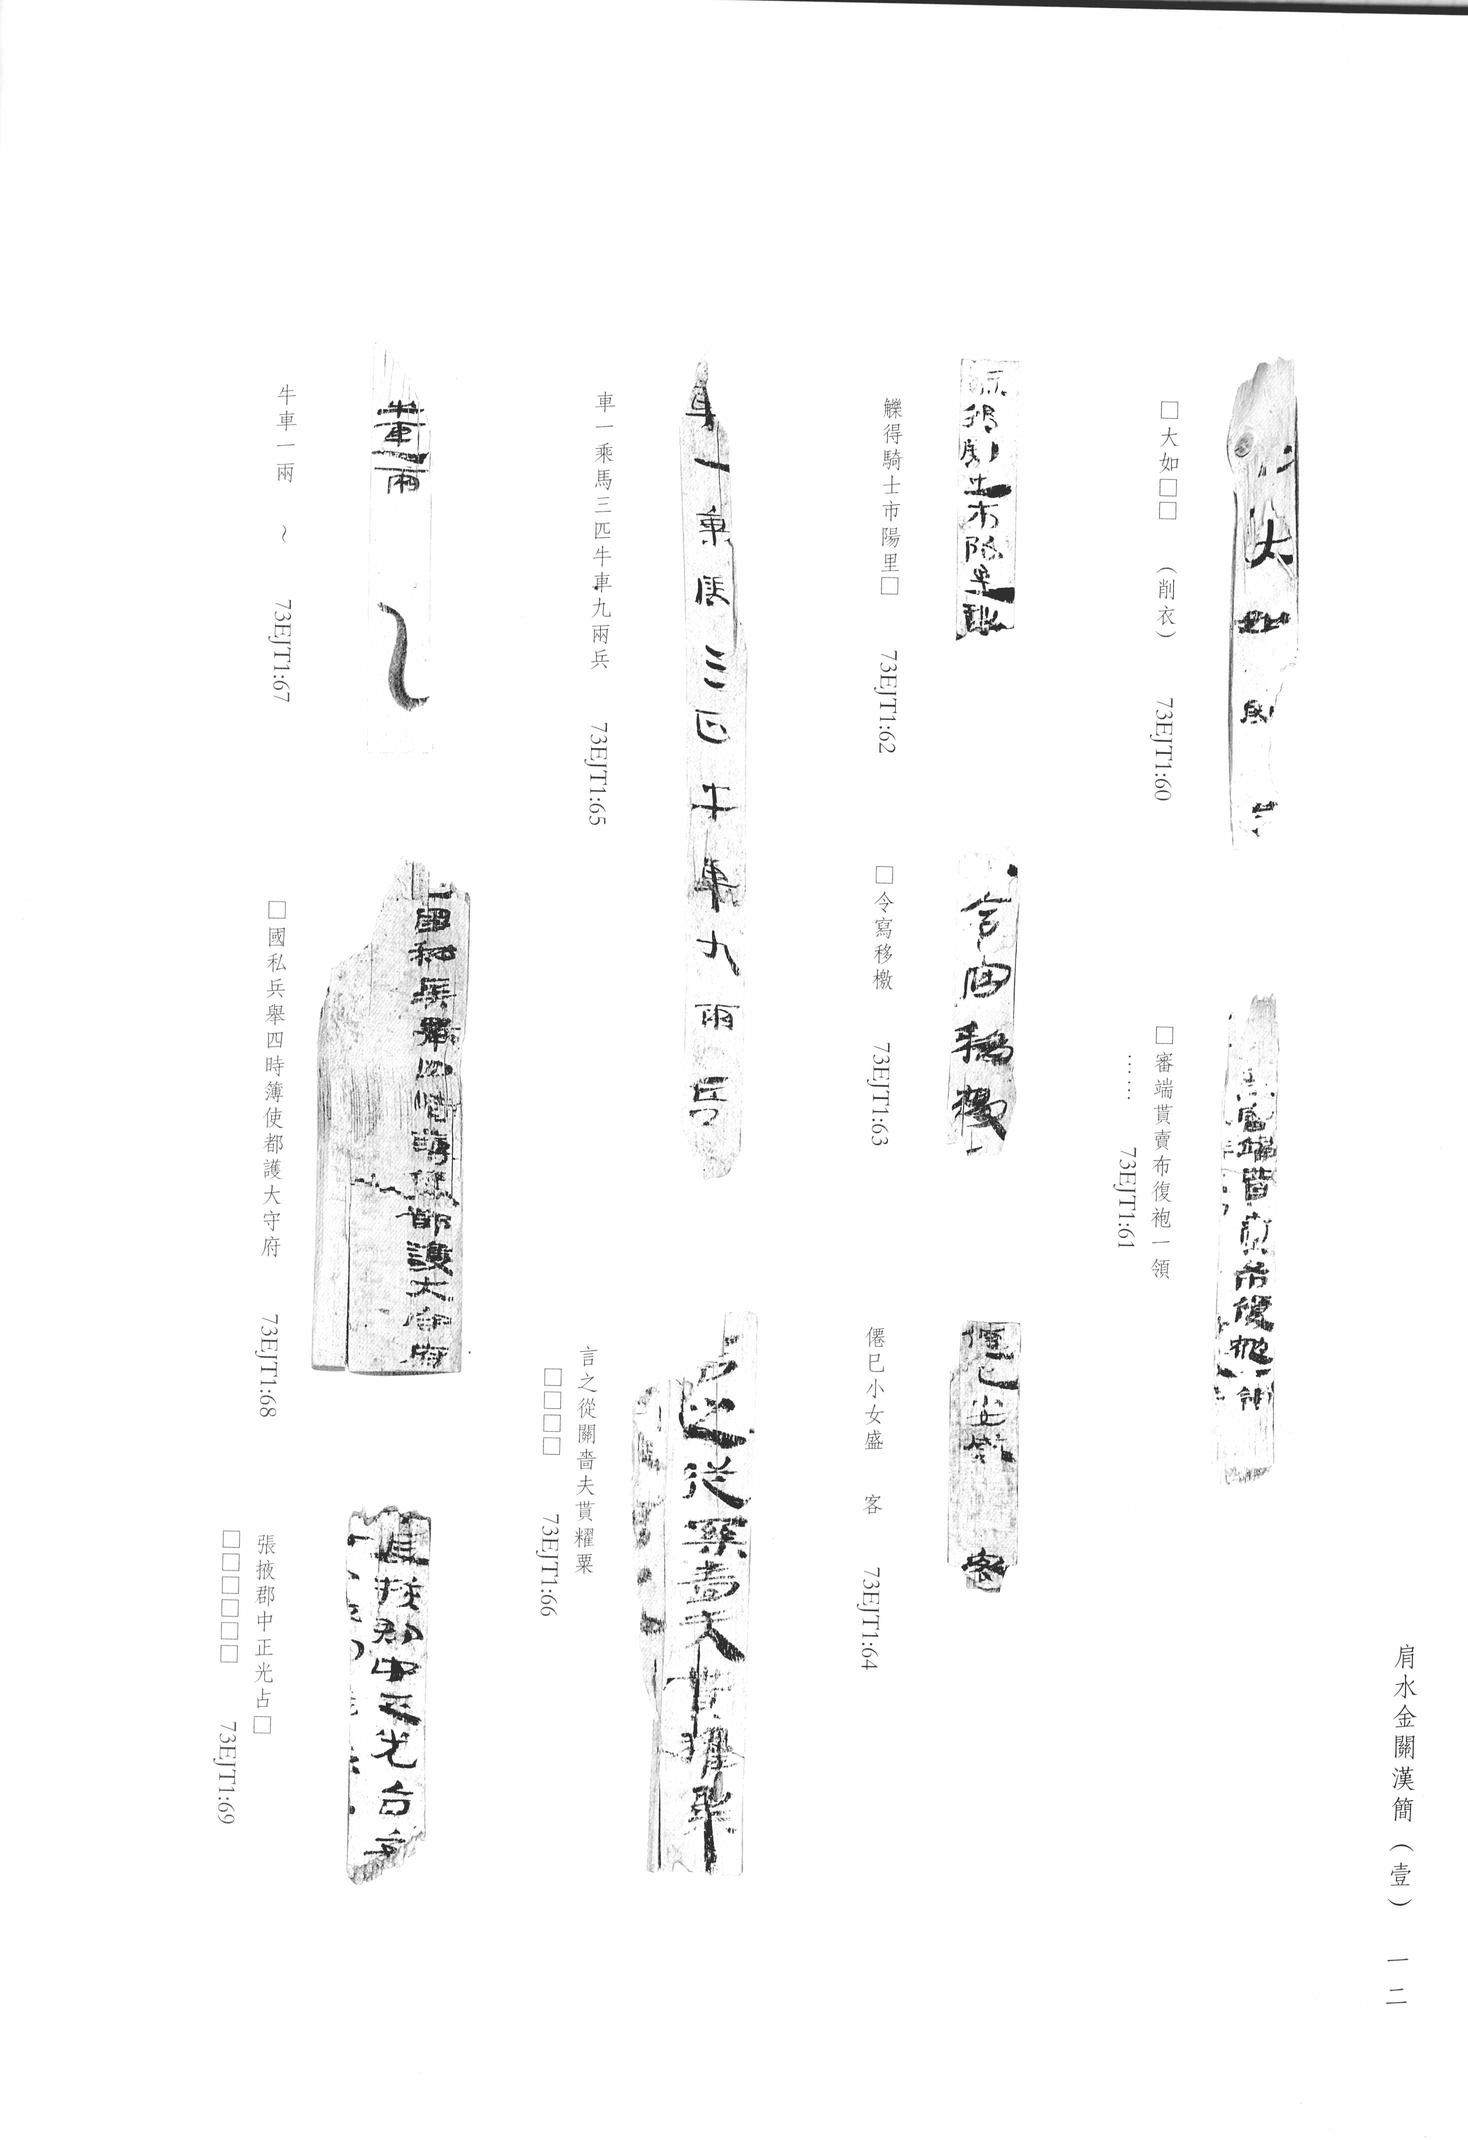 肩水金關漢簡（壹）　一二
□大如□□　（削衣）　73EJT1:60
□審端貰賣布復袍一領
……　73EJT1:61
觻得騎士市陽里□　73EJT1:62
□令寫移檄　73EJT1:63
僊巳小女盛　客　73EJT1:64
車一乘馬三匹牛車九兩兵　73EJT1:65
言之從關嗇夫貰糴粟
□□□□　73EJT1:66
牛車一兩　～　73EJT1:67
□國私兵舉四時簿使都護大守府　73EJT1:68
張掖郡中正光占□
□□□□□□　73EJT1:69